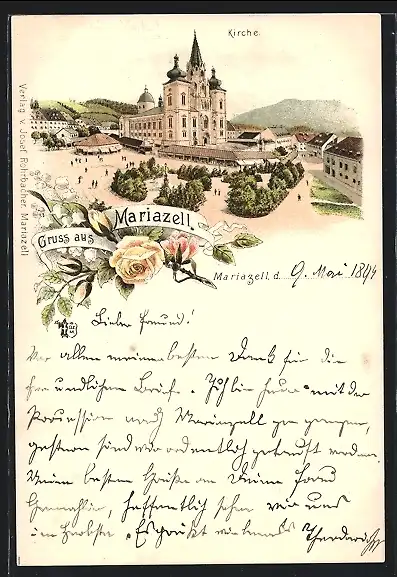 Kirche.
Verlag v. Josef Rohrbacher, Mariazell
Gruss aus
Mariazell.
Mariazell, d. 9. Mai 1894
Lieber Freund!
Vor allem meinen besten Dank für die
freundlichen Briefe. Ich bin heuer mit der
Prozession nach Mariazell gegangen,
gestern sind wir ordentlich getauft worden.
Meinen besten Grüße an Deine Frau
Gemahlin, hoffentlich sehen wir uns
im Herbste. Es grüßt vielmals